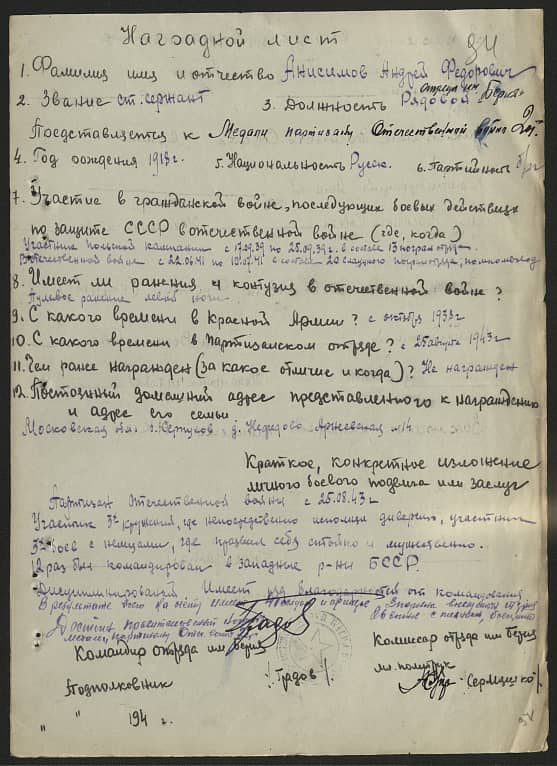 Наградной лист
1. Фамилия имя и отчество Анисимов Андрей Федорович
2. Звание ст. сержант 3. Должность Рядовой отряда им Берия
Представляется к Медали партизану Отечественной войны 2 ст.
4. Год рождения 1918 г. 5. Национальность Русск. 6. Партийность б/п
7. Участие в гражданской войне, последующих боевых действиях
по защите СССР в отечественной войне (где, когда)
Участник польской кампании с 17.09.39 по 25.09.39 г. в составе 13 погран отряда.
В отечественной войне с 22.06.41 по 10.07.41 с составе 20 погранотряда, помкомвзвод
8. Имеет ли ранения и контузия в отечественной войне?
Пулевое ранение левой ноги
9. С какого времени в Красной Армии? с октября 1938 г
10. С какого времени в партизанском отряде? с 25 августа 1943 г
11. Чем ранее награжден (за какое отличие и когда)? Не награжден
12. Постоянный домашний адрес представленного к награждению
и адрес его семьи.
Московская обл. г. Серпухов д. Нефедово №14
Краткое, конкретное изложение
личного боевого подвига или заслуг
Партизан отечественной войны с 25.08.43 г
Участник 3х крушений, где непосредственно исполнял диверсию, участник
3х боев с немцами, где проявил себя стойко и мужественно.
12 раз был командирован в западные р-ны БССР.
Дисциплинированный Имеет ряд благодарностей от командования
Достоин правительственной
медали партизану Отеч. войны
Командир отряда им Берия
Комиссар отряда им Берия
Подполковник
/Градов/
мл. политрук
194 г.